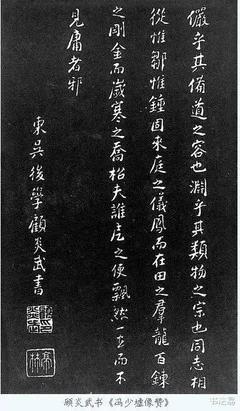 儼乎其備道之容也淵乎其類物之宗也同志相
從惟鄒惟鍾固來庭之儀鳳而在田之羣龍百鍊
之剛金而歲寒之喬松夫誰之使飄然一去而不
見庸者邪
東吳後學顧炎武書
亭林
顾炎武书《冯少墟像赞》